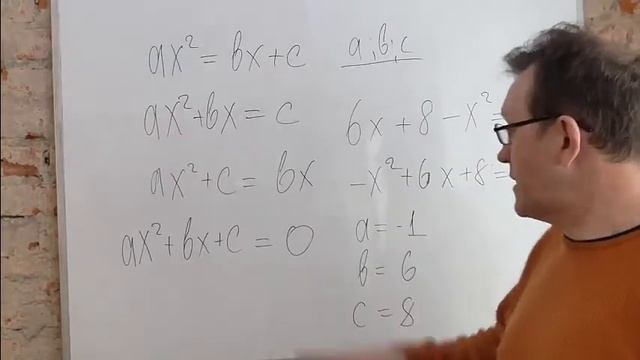 ax² = bx + c
ax² + bx = c
ax² + c = bx
ax² + bx + c = 0
a; b; c
6x + 8 - x² =
-x² + 6x + 8 =
a = -1
b = 6
c = 8